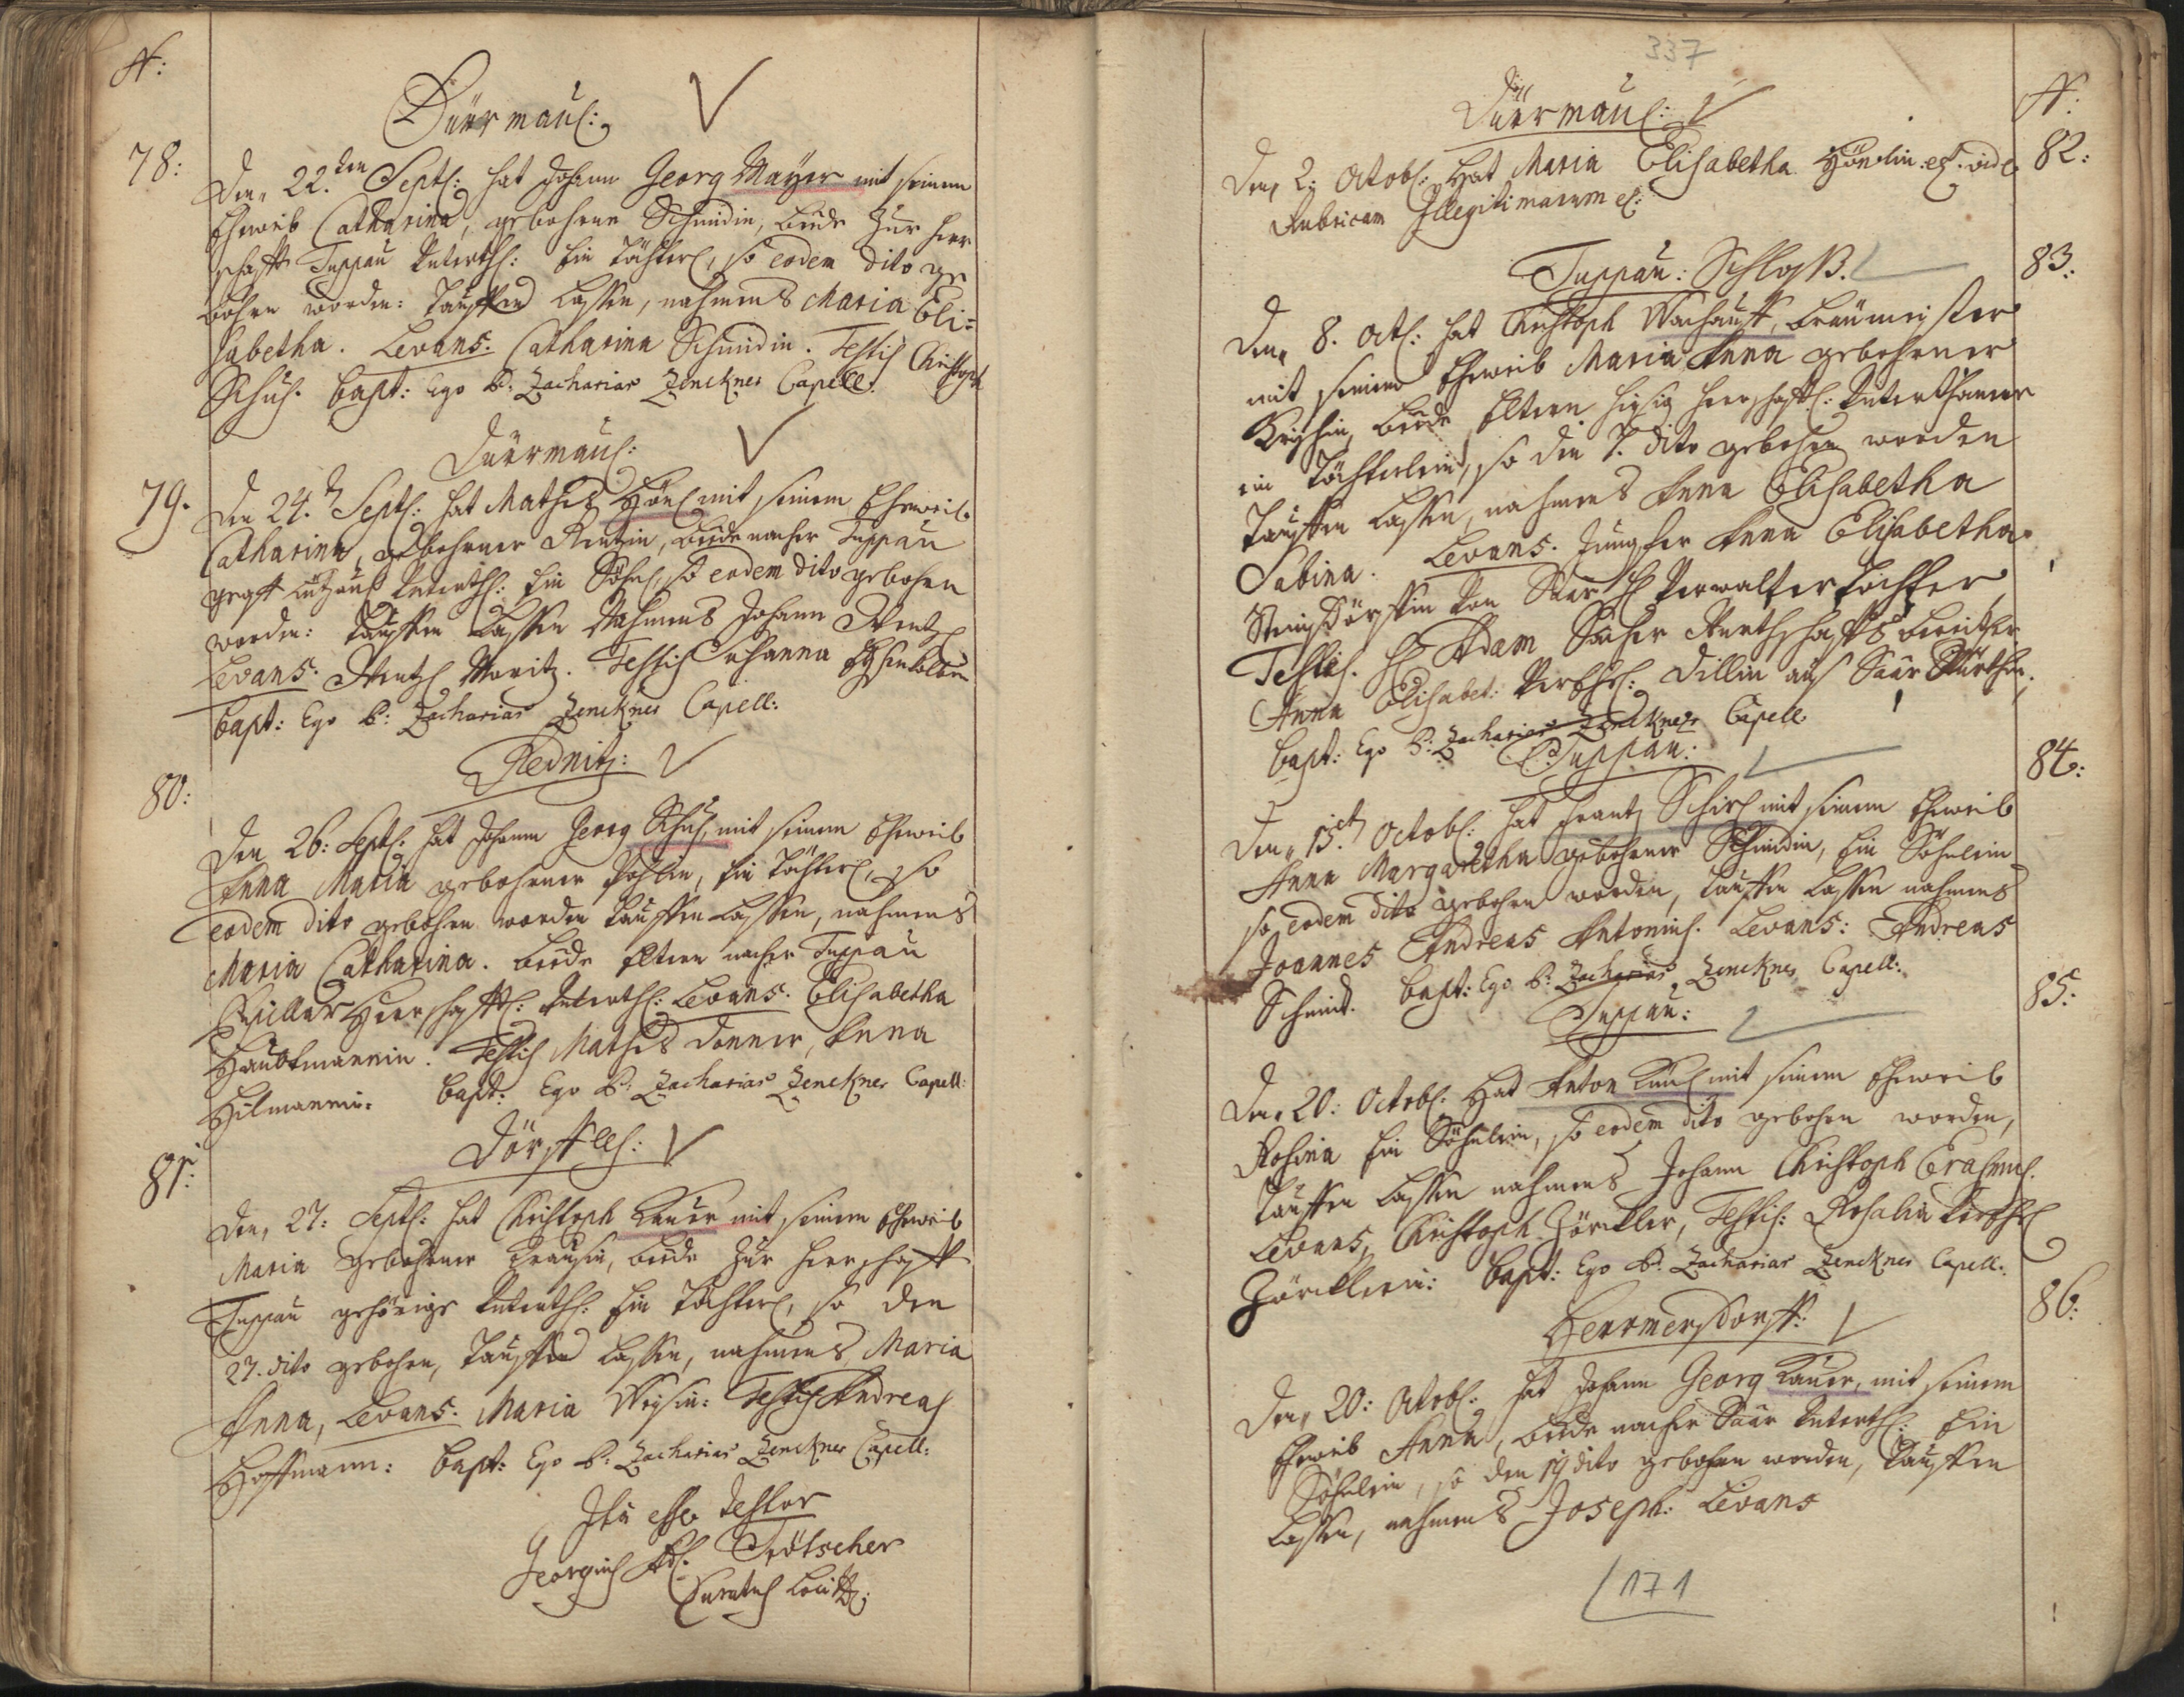 N:
Dürmaul:
78:
Den 22.ten Septl: hat Johann Georg Mayer mit seinem
Eheweib Catharina, gebohrne Schmidin, beede zur Herr
schafft Duppau Unterth: Ein Töchterl, so eodem dito ge
bohrn worden: tauffen lassen, nahmens Maria Eli=
sabetha. Levans: Catharina Schmidin. Testis Christoph
Schuh. bapt: Ego P: Zacharias Zenckner Capell:
Dürmaul:
79.
Den 24. Septl: hat Mathes Hönl mit seinem Eheweib
Catharina, gebohrner Rentzin, beede nacher Duppau
Unterth: Ein Söhnl, so eodem dito gebohrn
worden: tauffen lassen Nahmens Johann Wentzl
Levans: Wentzl Moritz. Testis Johanna
bapt: Ego P: Zacharias Zenckner Capell:
Rednitz:
80:
Den 26: Septl: hat Johann Georg Schuh, mit seinem Eheweib
Anna Maria gebohrner Pohlin, Ein Töchterl, so
eodem dito gebohrn worden tauffen lassen, nahmens
Maria Catharina. beede Eltern nacher Duppau
Herrschafftl: Unterth: Levans: Elisabetha
Haubtmannin. Testis Mathes Donner, Anna
Hilmannin: bapt: Ego P: Zacharias Zenckner Capell:
Dörffles:
81:
Den, 27: Septl: hat Christoph Lauer mit seinem Eheweib
Maria gebohrner Krausin, beede zur Herrschafft
Duppau gehörige Unterth: Ein Töchterl, so den
27. dito gebohrn, tauffen lassen, nahmens Maria
Anna, Levans: Maria Weysin: Testis Andreas
Hoffmann: bapt: Ego P: Zacharias Zenckner Capell:
Ita esse testor
Georgius Ad: Trötscher
Curatus Loci
337
Düermaul:
N:
82:
Den 2: Octobl: Hat Maria Elisabetha Hönlin. vide
Rubricam Illegitimarum
Duppau: Schloss.
83:
Den 8. Octl: hat Christoph Wachauff, Bräumeister
mit seinem Eheweib Maria Anna gebohrner
beede Eltern hiesig Herrschafftl: Unterthaner
ein Töchterlein, so den 7. dito gebohrn worden
tauffen lassen, nahmens Anna Elisabetha
Sabina. Levans. Jungfer Anna Elisabetha
Von Saar Verwalter Tochter,
Testis. H: Adam
Anna Elisabet: Dillin auß Saar
bapt: Ego P: Zacharias Zenckner Capell
Duppau:
84:
Den 13. Octobl: hat Frantz Schirl mit seinem Eheweib
Anna Margaretha gebohrner Schmidin, Ein Söhnlein
so eodem dito gebohrn worden, tauffen lassen nahmens
Joannes Andreas Antonius. Levans: Andreas
Schmid. bapt: Ego P: Zacharias Zenckner Capell:
Duppau:
85:
Den 20: Octobl: Hat Anton mit seinem Eheweib
Rosina Ein Söhnlein, so eodem dito gebohrn worden,
tauffen lassen nahmens Johann Christoph Erasmus.
Levans, Christoph Zörckler, Testis: Rosalia
Zörcklerin: bapt: Ego P: Zacharias Zenckner Capell:
Herrmersdorff:
86:
Den, 20: Octobl: hat Johann Georg Lauer, mit seinem
Eheweib Anna, beede nacher Saar Unterth: Ein
Söhnlein, so den 19 dito gebohrn worden, tauffen
lassen, nahmens Joseph: Levans
171